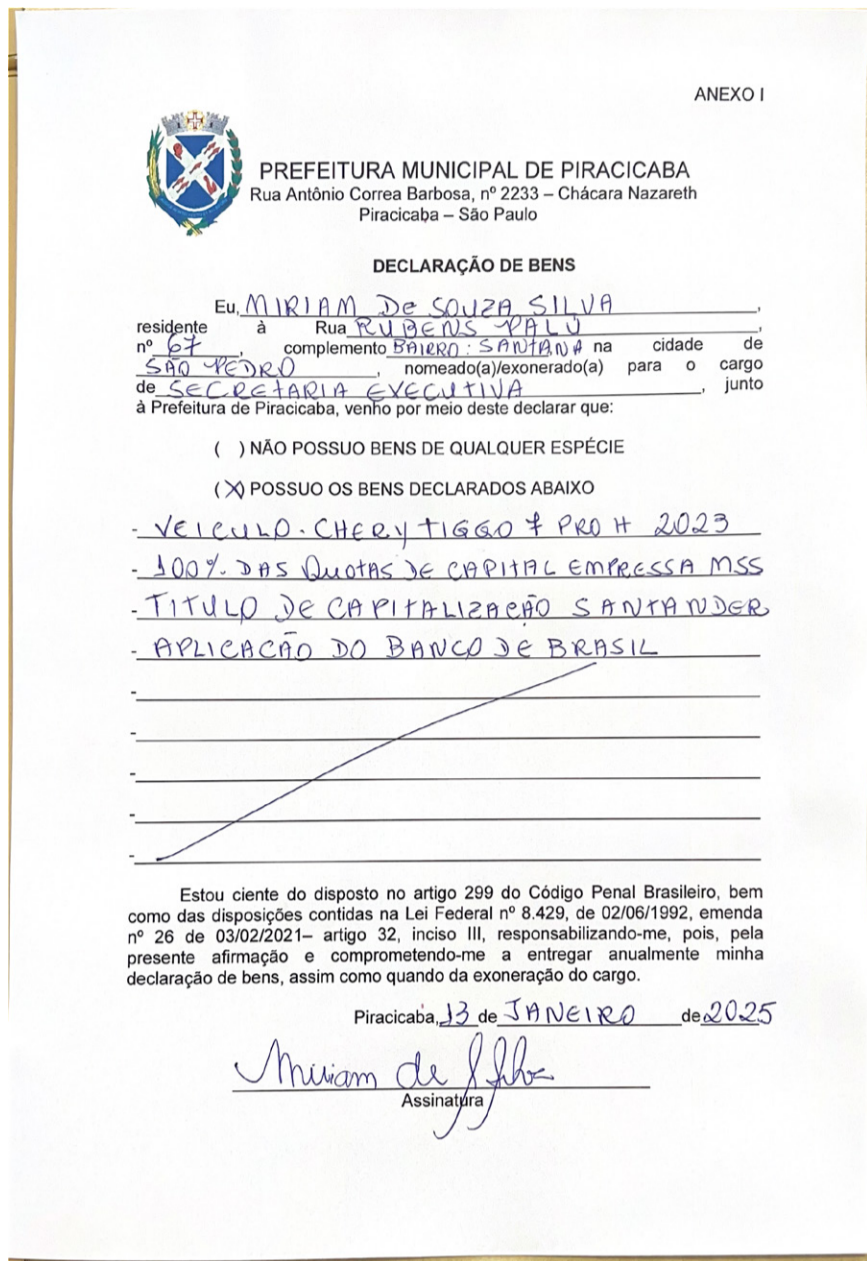 ANEXO I
PREFEITURA MUNICIPAL DE PIRACICABA
Rua Antônio Correa Barbosa, nº 2233 – Chácara Nazareth
Piracicaba – São Paulo
DECLARAÇÃO DE BENS
Eu, MIRIAM De SOUZA SILVA,
residente à Rua RUBENS PALÚ,
nº 67, complemento BAIRRO: SANTANA na cidade de
SÃO PEDRO, nomeado(a)/exonerado(a) para o cargo
de SECRETARIA EXECUTIVA, junto
à Prefeitura de Piracicaba, venho por meio deste declarar que:
( ) NÃO POSSUO BENS DE QUALQUER ESPÉCIE
(X) POSSUO OS BENS DECLARADOS ABAIXO
- VEICULO. CHERY TIGGO 7 PRO H 2023
- 100% DAS QUOTAS DE CAPITAL EMPRESSA MSS
- TITULO DE CAPITALIZAÇÃO SANTANDER
- APLICACÃO DO BANCO DE BRASIL
-
-
-
-
-
Estou ciente do disposto no artigo 299 do Código Penal Brasileiro, bem
como das disposições contidas na Lei Federal nº 8.429, de 02/06/1992, emenda
nº 26 de 03/02/2021– artigo 32, inciso III, responsabilizando-me, pois, pela
presente afirmação e comprometendo-me a entregar anualmente minha
declaração de bens, assim como quando da exoneração do cargo.
Piracicaba, 13 de JANEIRO de 2025
Miriam de S Silva
Assinatura